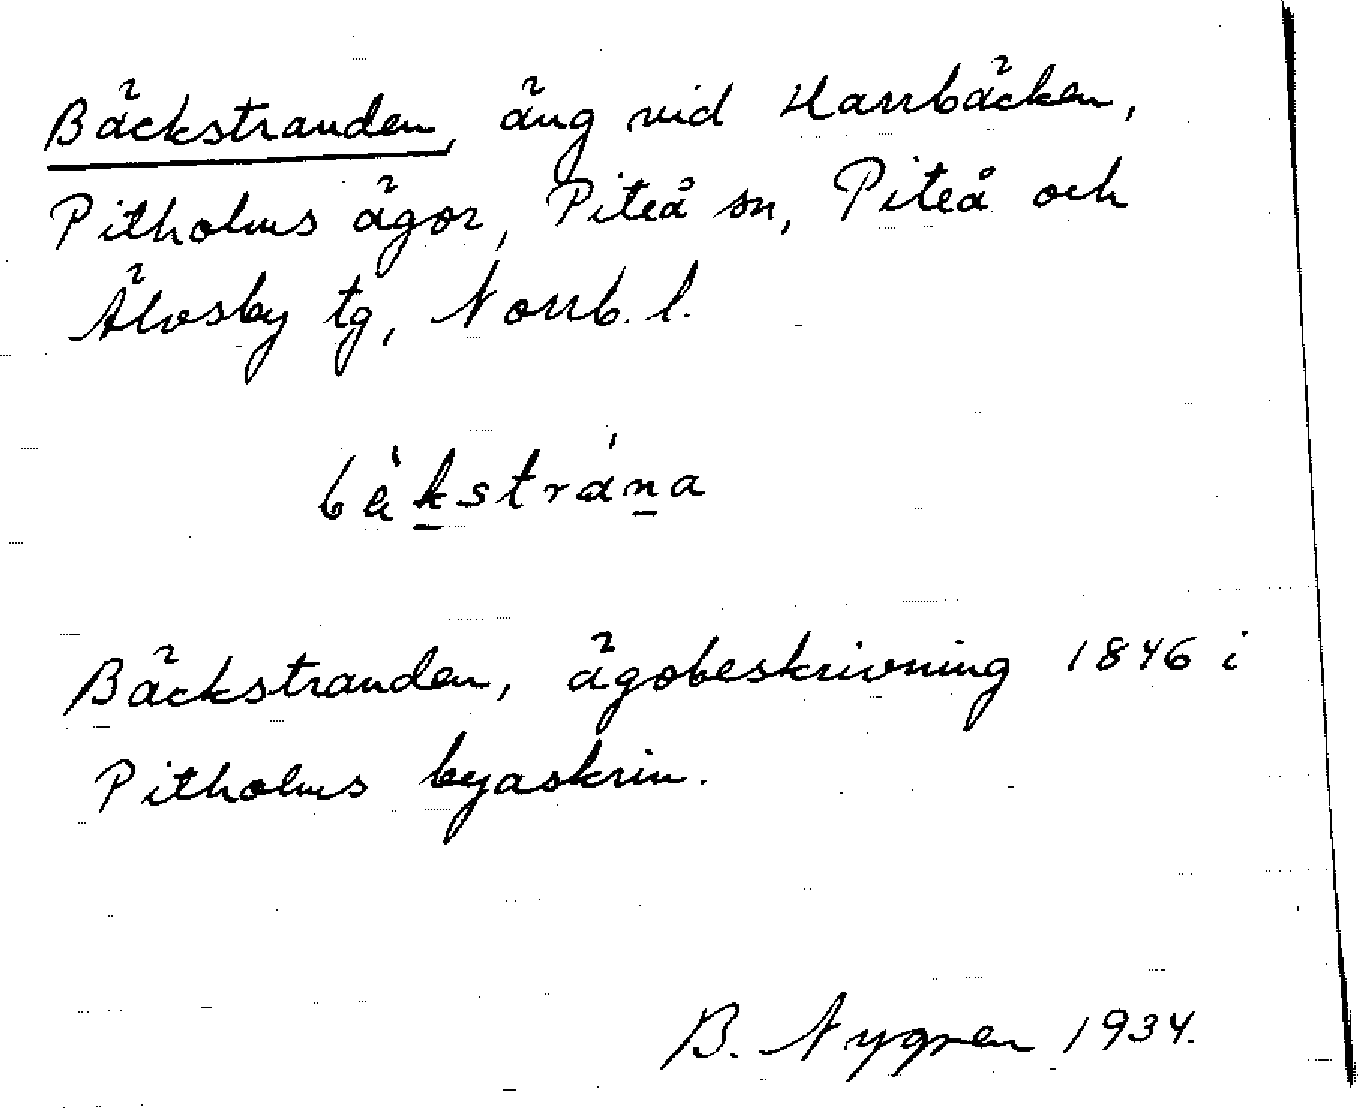 Bäckstranden, äng vid Harrbäcken,
Pitholms ägor, Piteå sn, Piteå och
Älvsby tg, Norrb. l.
bèkstrána
Bäckstranden, ägobeskrivning 1846 i
Pitholms byaskrin.
B. Nygren 1934.